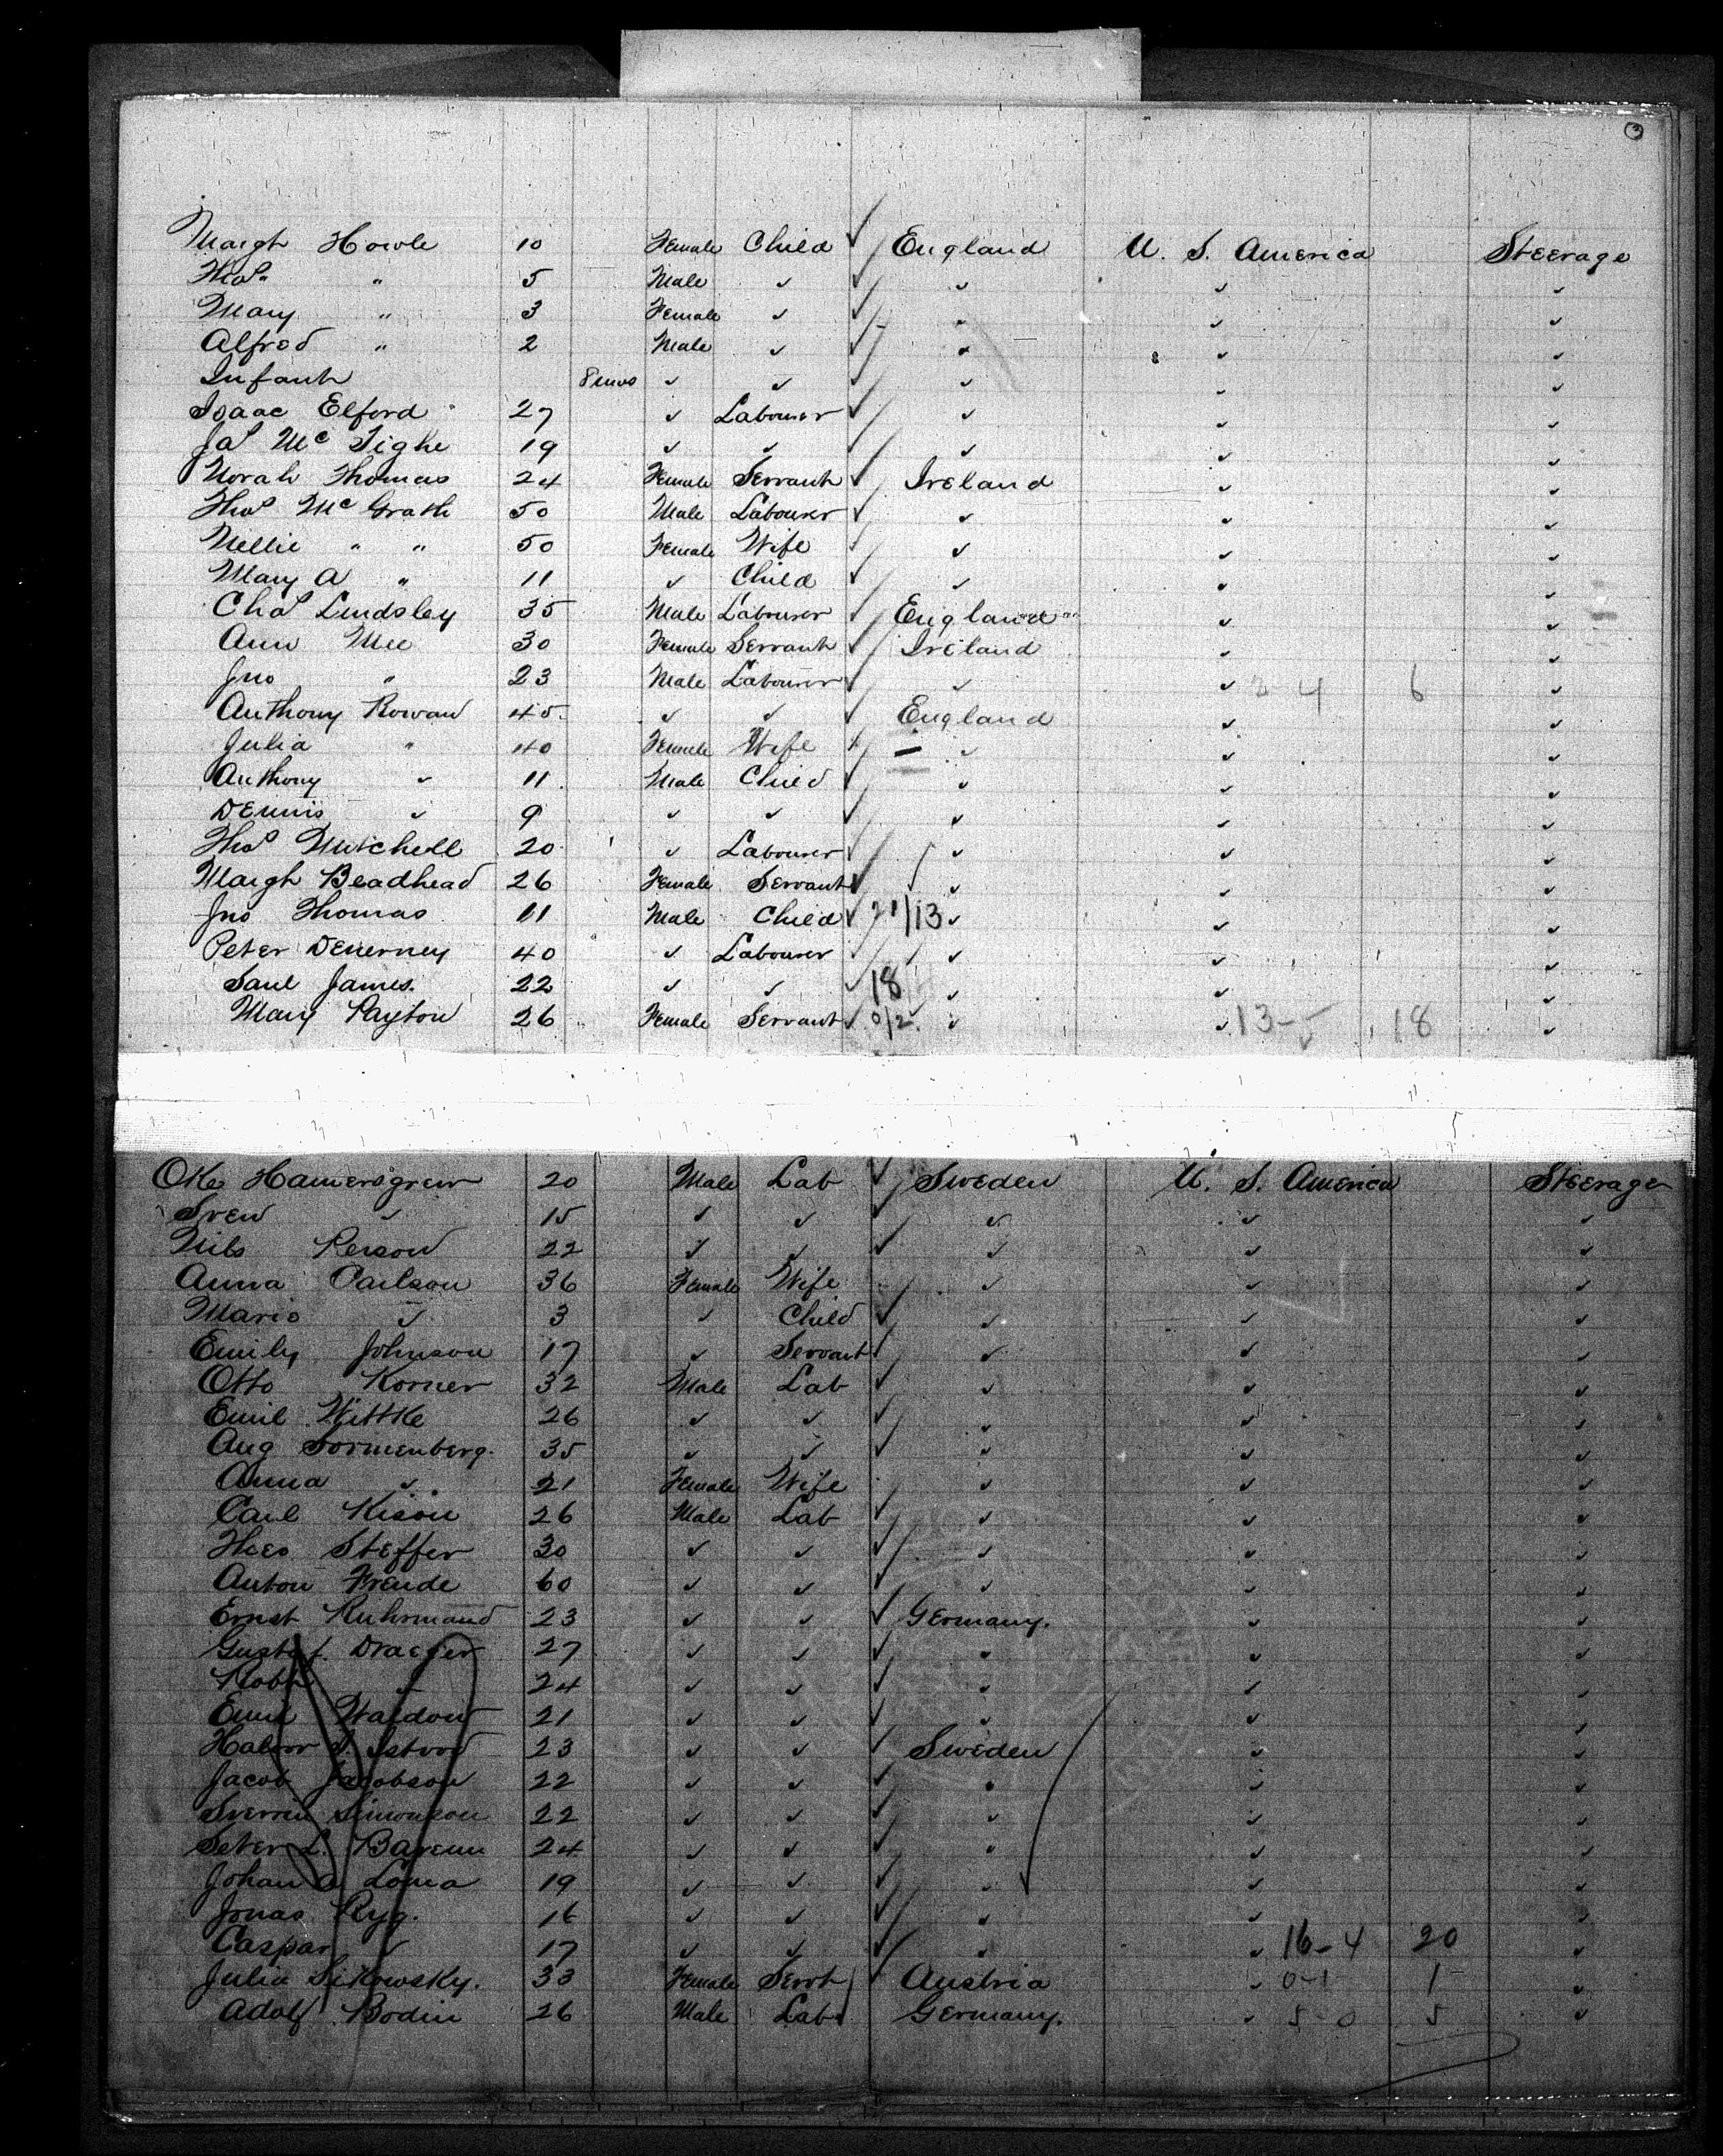 3
Margt Howle 10 Female Child ✓ England U. S. America Steerage
Thos " 5 Male ✓ ✓ ✓ ✓ ✓
Mary " 3 Female ✓ ✓ " ✓ ✓
Alfred " 2 Male ✓ ✓ ✓ ✓ ✓
Infant 8 mos ✓ ✓ ✓ ✓ ✓ ✓
Isaac Elford 27 ✓ Labourer ✓ ✓ ✓ ✓
Jas Mc Tighe 19 ✓ ✓ ✓ ✓ ✓ ✓
Norah Thomas 24 Female Servant ✓ Ireland ✓ ✓
Thos Mc Grath 50 Male Labourer ✓ ✓ ✓ ✓
Nellie " " 50 Female Wife ✓ ✓ ✓
Mary A " 11 ✓ Child ✓ ✓ ✓ ✓
Chas Lindsley 35 Male Labourer ✓ England ✓ ✓
Ann Mee 30 Female Servant ✓ Ireland ✓ ✓
Jno " 23 Male Labourer ✓ ✓ ✓ 2 4 6 ✓
Anthony Rowan 45 ✓ ✓ ✓ England ✓ ✓
Julia " 40 Female Wife ✓ ✓ ✓
Anthony ✓ 11 Male Child ✓ ✓ ✓ ✓
Dennis ✓ 9 ✓ ✓ ✓ ✓ ✓ ✓
Thos Mitchell 20 ✓ Labourer ✓ ✓ ✓ ✓
Margt Beadhead 26 Female Servant ✓ ✓ ✓ ✓
Jno Thomas 11 Male Child ✓ 21/13 ✓ ✓ ✓
Peter Denerney 40 ✓ Labourer ✓ ✓ ✓ ✓
Saul James. 22 ✓ ✓ ✓ 18 ✓ ✓ ✓
Mary Payton 26 Female Servant ✓ 0/2 ✓ ✓ 13-5 18 ✓
Oke Hamersgren 20 Male Lab ✓ Sweden U. S. America Steerage
Sven ✓ 15 ✓ ✓ ✓ ✓ ✓ ✓
Nils Person 22 ✓ ✓ ✓ ✓ ✓ ✓
Anna Carlson 36 Female Wife ✓ ✓ ✓
Mario ✓ 3 ✓ Child ✓ ✓ ✓ ✓
Emily Johnson 17 ✓ Servant ✓ ✓ ✓ ✓
Otto Korner 32 Male Lab ✓ ✓ ✓ ✓
Emil Wittke 26 ✓ ✓ ✓ ✓ ✓ ✓
Aug Sormenberg. 35 ✓ ✓ ✓ ✓ ✓ ✓
Anna ✓ 21 Female Wife ✓ ✓ ✓
Carl Kison 26 Male Lab ✓ ✓ ✓ ✓
Theo Steffer 30 ✓ ✓ ✓ ✓ ✓ ✓
Anton Frende 60 ✓ ✓ ✓ ✓ ✓ ✓
Ernst Ruhrmand 23 ✓ ✓ ✓ Germany. ✓ ✓
Gustaf Draeger 27 ✓ ✓ ✓ ✓ ✓ ✓
Robt ✓ 24 ✓ ✓ ✓ ✓ ✓ ✓
Emil Waldow 21 ✓ ✓ ✓ ✓ ✓ ✓
23 ✓ ✓ ✓ Sweden ✓ ✓
Jacob Jacobson 22 ✓ ✓ ✓ ✓ ✓
Simonson 22 ✓ ✓ ✓ ✓ ✓ ✓
Peter L. 24 ✓ ✓ ✓ ✓ ✓ ✓
Johan A Loma 19 ✓ ✓ ✓ ✓ ✓ ✓
Jonas Ryg. 16 ✓ ✓ ✓ ✓ ✓ ✓
Caspar ✓ 17 ✓ ✓ ✓ ✓ ✓ 16-4 20 ✓
Julia Sikowsky. 33 Female Servt ✓ Austria ✓ 0-1 1 ✓
Adolf Bodin 26 Male Lab Germany. ✓ 5-0 5 ✓